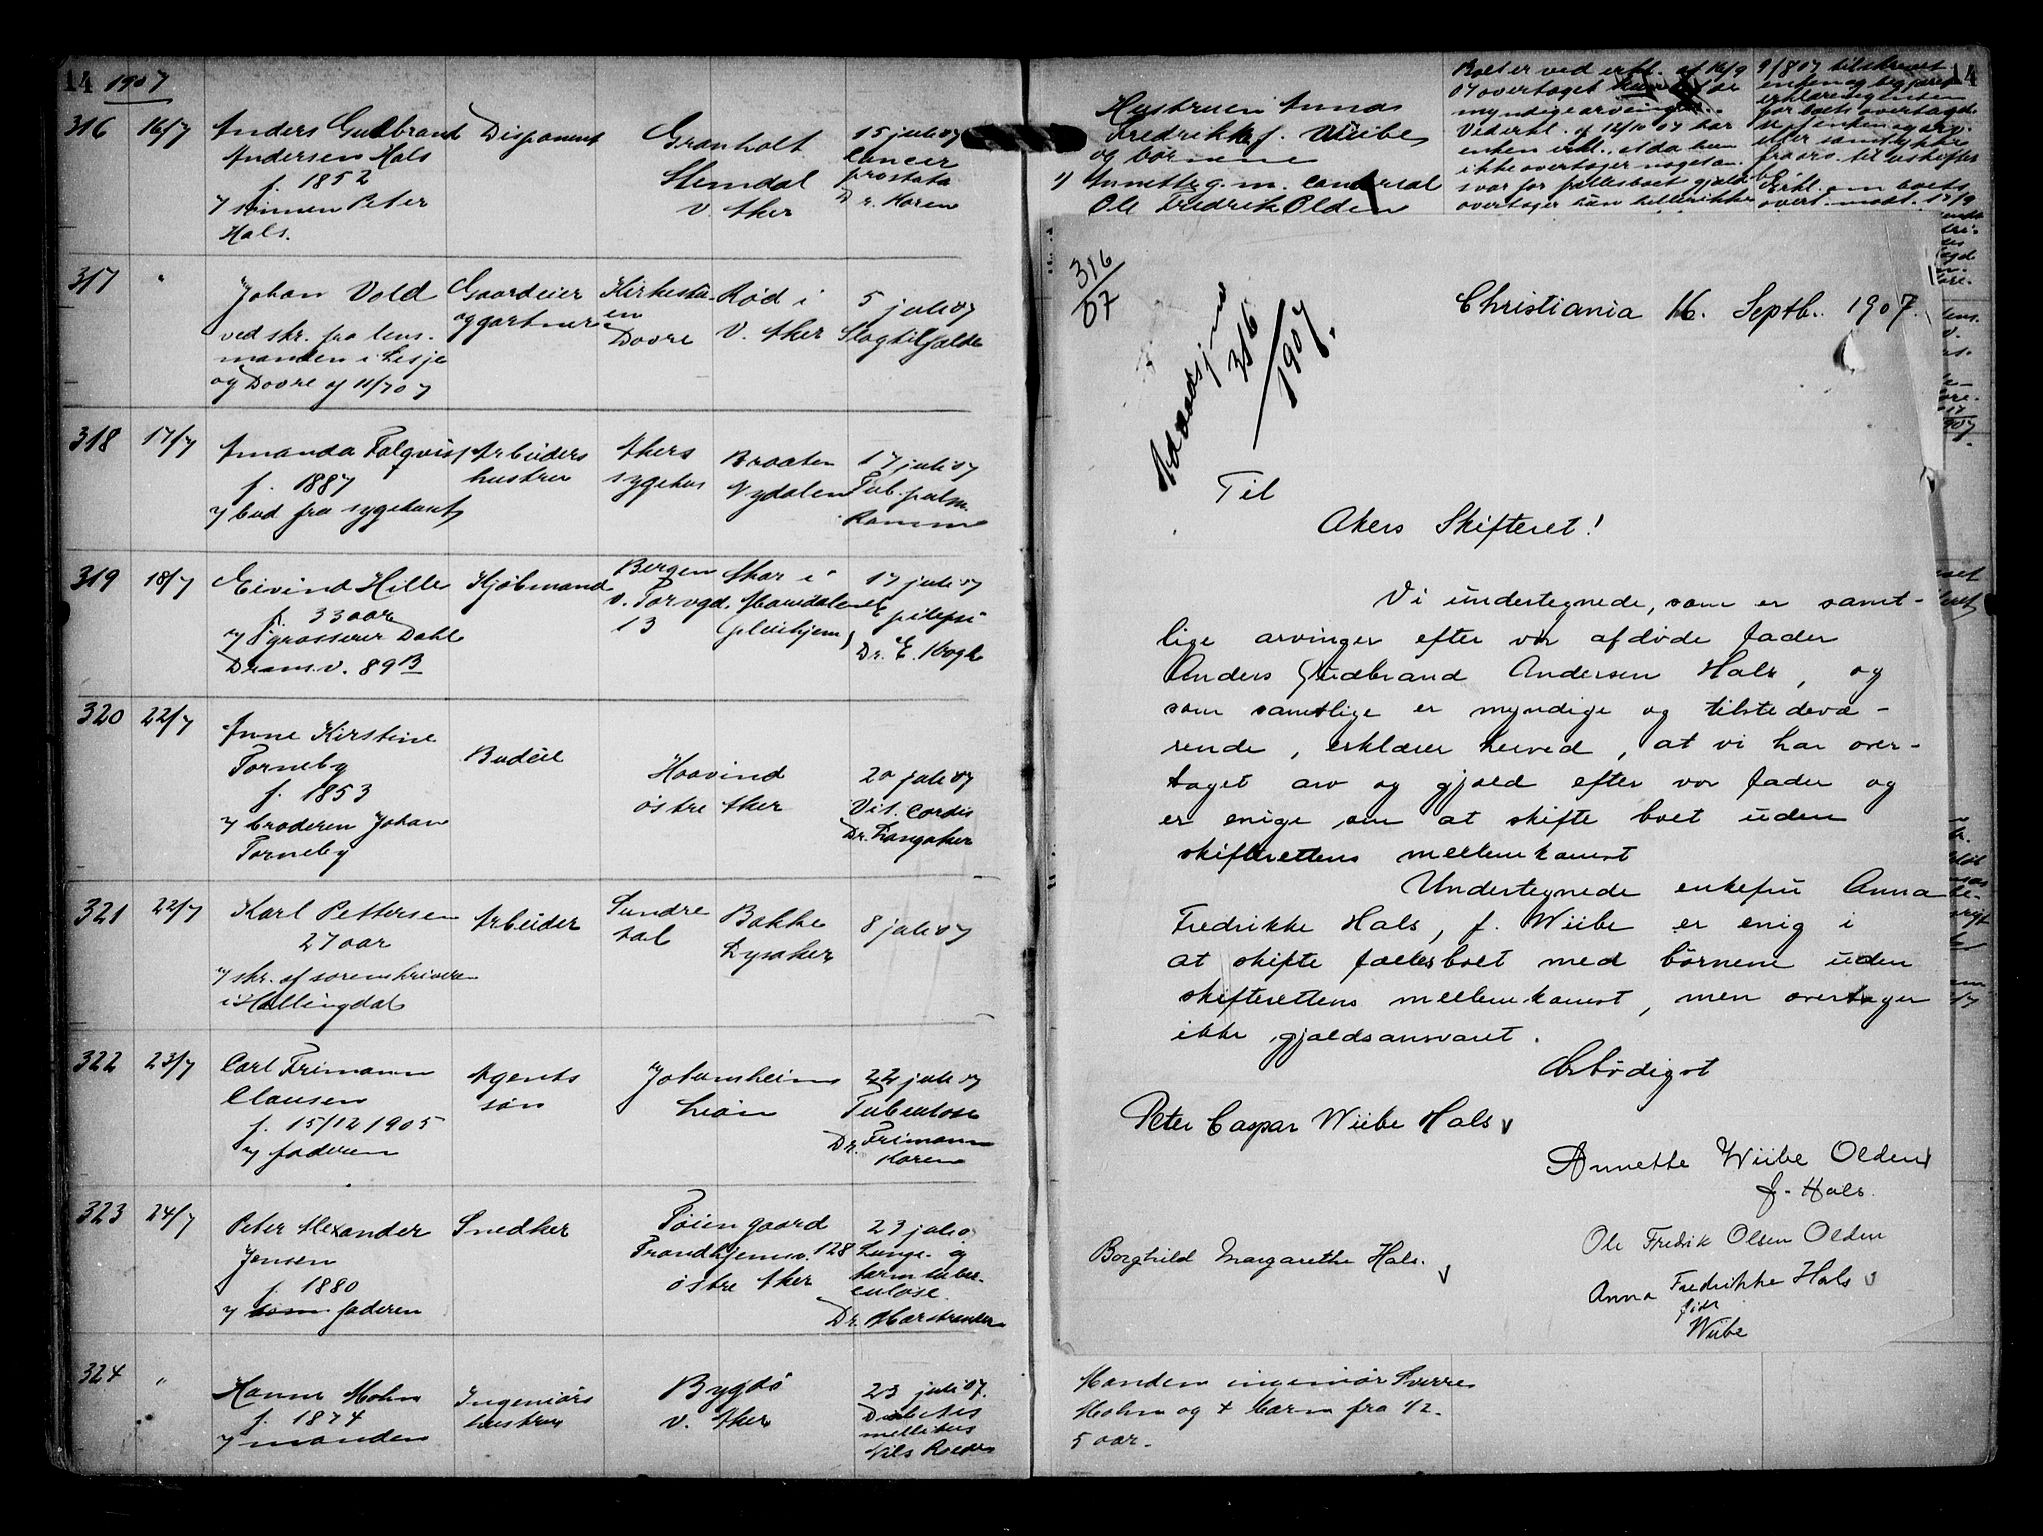 14 1907
316 16/7 Anders Gulbrand
Andersen Hals
f. 1852
v/ sønnen Peter
Hals.
Disponent
Granholt
Slemdal
V. Aker
15 juli 07
Cancer
prostata
Dr. Koren
317 "
Johan Vold
ved skr. fra lens-
manden i Lesje
og Dovre af 11/7 07
Gaardeier
og gartner
Kirkestu-
en
Dovre
Rød i
V. Aker
5 juli 07
Slagtilfælde
318 17/7
Amanda Falqvist
f. 1887
v/ bud fra sygehuset
Arbeiders
hustru
Akers
sygehus
Braaten
Nydalen
17 juli 07
Tub. pulm.
319 18/7
Eivind Hille
f. 33 aar
v/ grosserer Dahl
Dram.v. 89 B
Kjøbmand
Bergen
V. Torvgd.
13
Skar i
Maridalen
(pleiehjem)
17 juli 07
Epilepsi
Dr. E. Vogt
320 22/7
Anne Kirstine
Torneby
f. 1853
v/ broderen Johan
Torneby
Budeie
Hovind
østre Aker
20 juli 07
Vit. cordis
Dr. Langaker
321 22/7
Karl Pettersen
27 aar
v/ skr. af sorenskriveren
i Hallingdal
Arbeider
Sundre
Aal
Bakke
Lysaker
8 juli 07
322 23/7
Carl Frimann
Clausen
f. 15/12 1905
v/ faderen
Agents
søn
Johannsheim
Lian
22 juli 07
Tuberkulose
Dr. Frimann
Koren
323 24/7
Peter Alexander
Jensen
f. 1880
v/ faderen
Snedker
Tøiengaard
Trondhjemsv. 128
østre Aker
23 juli 07
Lunge- og
tarmtuber-
culose.
Dr. Harstranden
324 "
Hanne Mohn
f. 1874
v/ manden
Ingeniørs
hustru
Bygdø
V. Aker
23 juli 07.
Diabetes
mellitus
Nils Roede
Hustruen Anna
Fredrikke f. Wiibe
og børnene
1) Annette g. m. cand.real
Ole Fredrik Olden
Boet er ved erkl. af 16/9
07 overtaget af de
myndige arvinger.
Ved erkl. af 16/10 07 har
enken erkl., at da hun
ikke overtager noget an-
svar for fællesboet gjæld
overtager hun hellerikke
9/8 07 tilskrevet
enken og begjært
erklæring enten
for boets overtagelse
Erkl. om boets
overt. modt. 17/9
14
316
07
Christiania 16. Septb. 1907.
316
1907.
Til
Akers Skifteret!
Vi undertegnede, som er samt-
lige arvinger efter vor afdøde fader
Anders Gudbrand Andersen Hals, og
som samtlige er myndige og tilstedevæ-
rende, erklærer herved, at vi har over-
taget arv og gjæld efter vor fader og
er enige om at skifte boet uden
skifterettens mellemkomst
Undertegnede enkefru Anna
Fredrikke Hals, f. Wiibe er enig i
at skifte fællesboet med børnene uden
skifterettens mellemkomst, men overtager
ikke gjældsansvaret.
Ærbødigst
Peter Caspar Wiibe Hals
Annette Wiibe Olden
f. Hals.
Ole Fredrik Olsen Olden
Borghild Margarethe Hals.
Anna Fredrikke Hals
født
Wiibe
Manden ingeniør Sverre
Mohn og 4 børn fra 1/2-
5 aar.